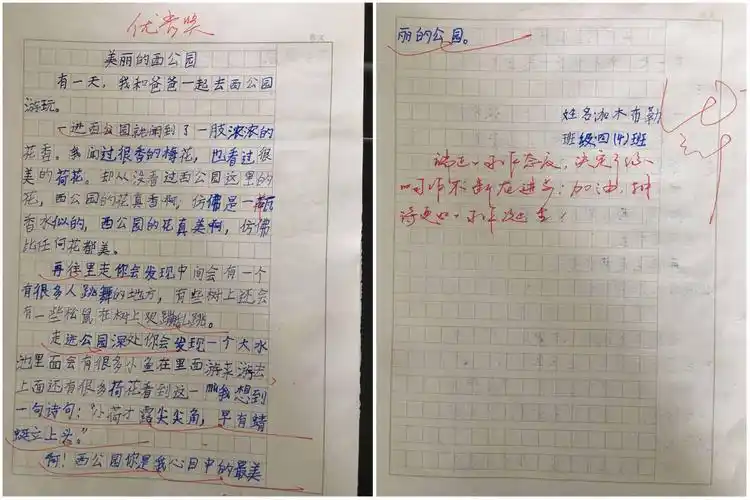 优秀奖
美丽的西公园
有一天，我和爸爸一起去西公园
游玩。
进西公园就闻到了一股浓浓的
花香。我闻过很香的梅花，也看过很
美的荷花。却从没看过西公园这里的
花，西公园的花真香啊，仿佛是一瓶
香水似的，西公园的花真美啊，仿佛
比任何花都美。
再往里走你会发现中间会有一个
有很多人跳舞的地方，有些树上还会
有一些松鼠在树上跳。
走进公园深处你会发现一个大水
池里面会有很多小鱼在里面游来游去，
上面还有很多荷花看到这一我想到
一句诗句：“小荷才露尖尖角，早有蜻
蜓立上头。”
啊！西公园你是我心目中的最美
丽的公园。
姓名加木布勒
班级四(4)班
决定了你
不断在进步：加油